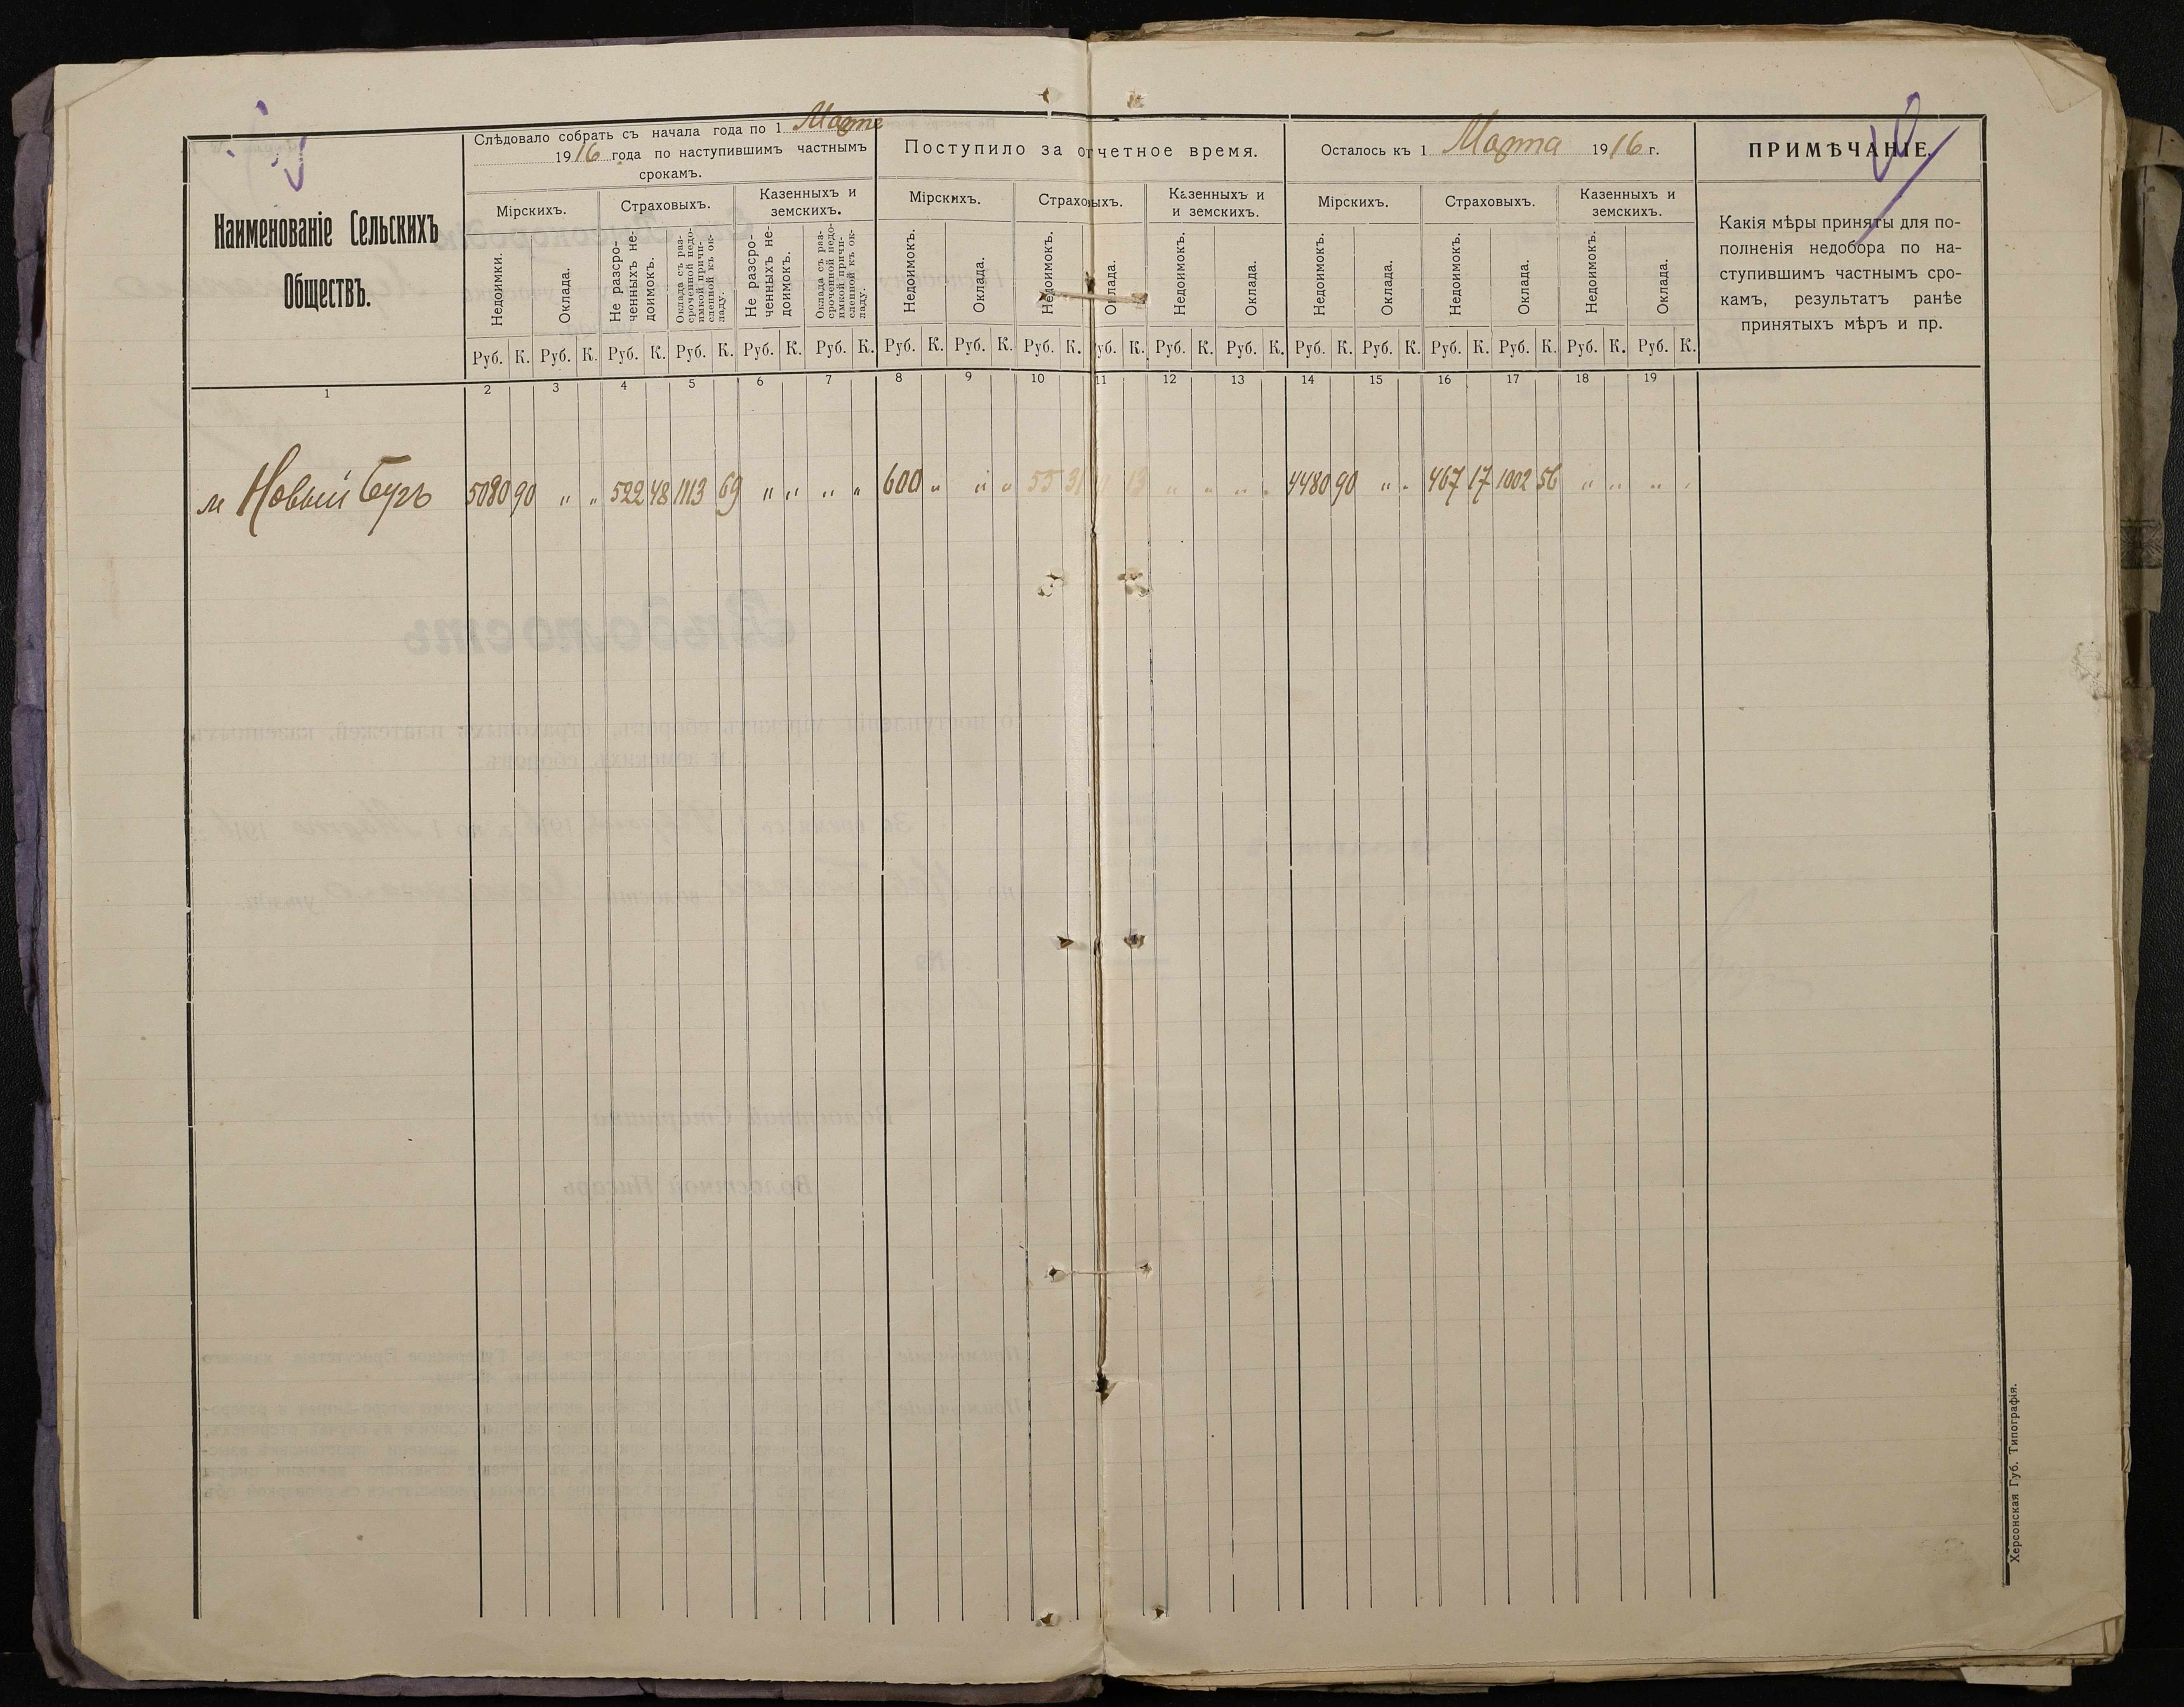 Наименованіе Сельскихъ
Обществъ.
Слѣдовало собрать съ начала года по 1 Марта
1916 года по наступившимъ частнымъ
срокамъ.
Поступило за отчетное время.
Осталось къ 1 Марта 1916 г.
ПРИМѢЧАНІЕ.
Мірскихъ.
Страховыхъ.
Казенныхъ и
земскихъ.
Мірскихъ.
Страховыхъ.
Казенныхъ и
и земскихъ.
Мірскихъ.
Страховыхъ.
Казенныхъ и
земскихъ.
Какія мѣры приняты для по-
полненія недобора по на-
ступившимъ частнымъ сро-
камъ, результатъ ранѣе
принятыхъ мѣръ и пр.
Недоимки.
Оклада.
Не разсро-
ченныхъ не-
доимокъ.
Оклада съ раз-
сроченной недо-
имкой причи-
сленной къ ок-
ладу.
Не разсро-
ченныхъ не-
доимокъ.
Оклада съ раз-
сроченной недо-
имкой причи-
сленной къ ок-
ладу.
Недоимокъ.
Оклада.
Недоимокъ.
Оклада.
Недоимокъ.
Оклада.
Недоимокъ.
Оклада.
Недоимокъ.
Оклада.
Недоимокъ.
Оклада.
Руб. К. Руб. К. Руб. К. Руб. К. Руб. К. Руб. К. Руб. К. Руб. К. Руб. К. Руб. К. Руб. К. Руб. К. Руб. К. Руб. К. Руб. К. Руб. К. Руб. К. Руб. К.
1 2 3 4 5 6 7 8 9 10 11 12 13 14 15 16 17 18 19
м Новый Бугъ 5080 90 " " 522 48 1113 69 " " " " 600 " " " 55 31 13 " " " " 4480 90 " " 467 17 1002 56 " " " "
Херсонская Губ. Типографія.